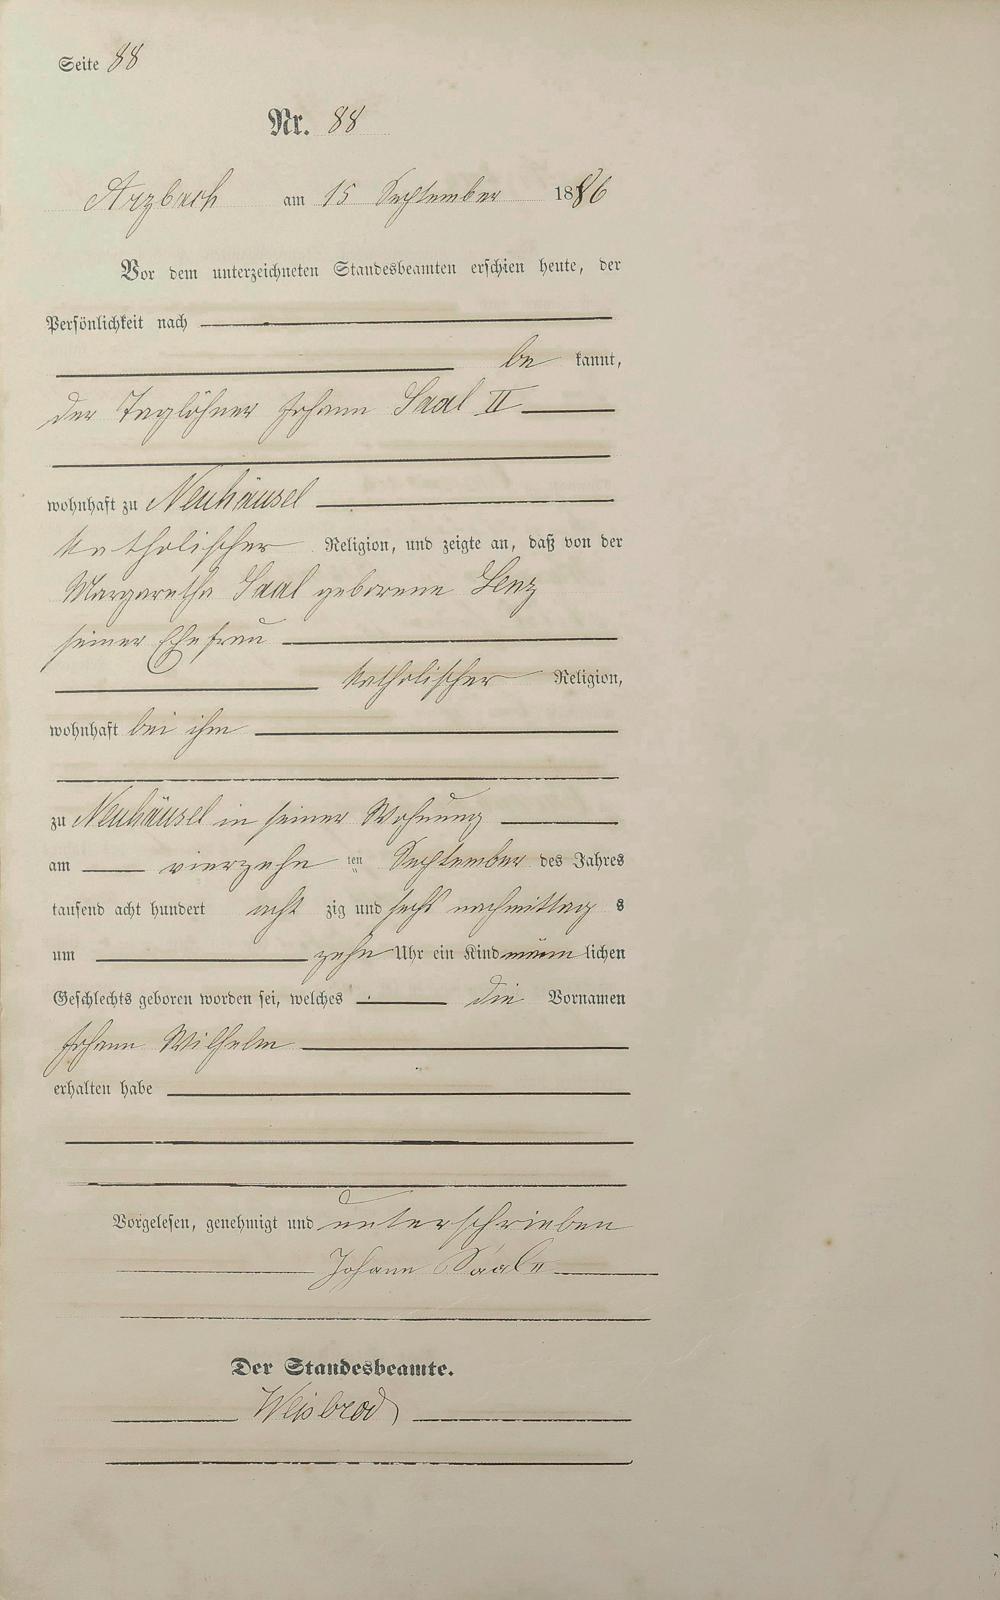 Seite 88
Nr. 88
Arzbach am 15 September 1886
Vor dem unterzeichneten Standesbeamten erschien heute, der
Persönlichkeit nach
be kannt,
der Taglöhner Johann Saal II
wohnhaft zu Neuhäusel
katholischer Religion, und zeigte an, daß von der
Margaretha Saal geborene Lenz
seiner Ehefrau
katholischer Religion,
wohnhaft bei ihm
zu Neuhäusel in seiner Wohnung
am vierzehn ten September des Jahres
tausend acht hundert acht zig und sechs nachmittag s
um zehn Uhr ein Kind männ lichen
Geschlechts geboren worden sei, welches die Vornamen
Johann Wilhelm
erhalten habe
Vorgelesen, genehmigt und unterschrieben
Johann Saal II
Der Standesbeamte.
Weisbrod